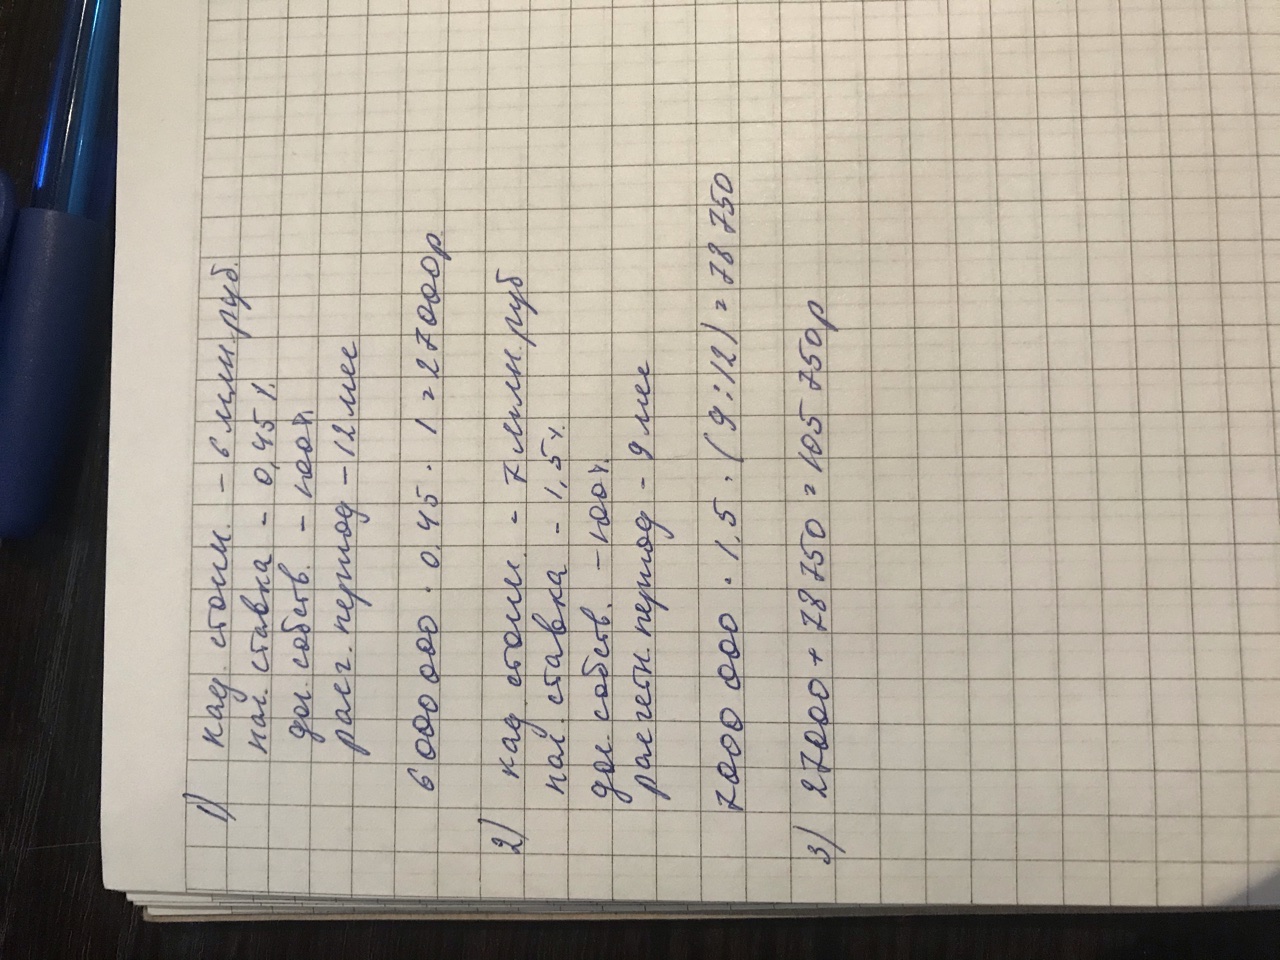 1) кад. стоим. - 6 млн. руб.
нал. ставка - 0,45 %
дол. собств. - 100%
расч. период - 12 мес
6 000 000 · 0,45 · 1 = 27000р
2) кад. стоим. - 7 млн. руб
нал. ставка - 1,5%
дол. собств. - 100%
расчетн. период - 9 мес
7000 000 · 1,5 · (9:12) = 78 750
3) 27000 + 78 750 = 105 750р